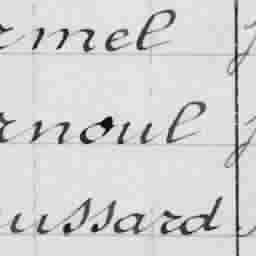 rmel
rnoul
ussard